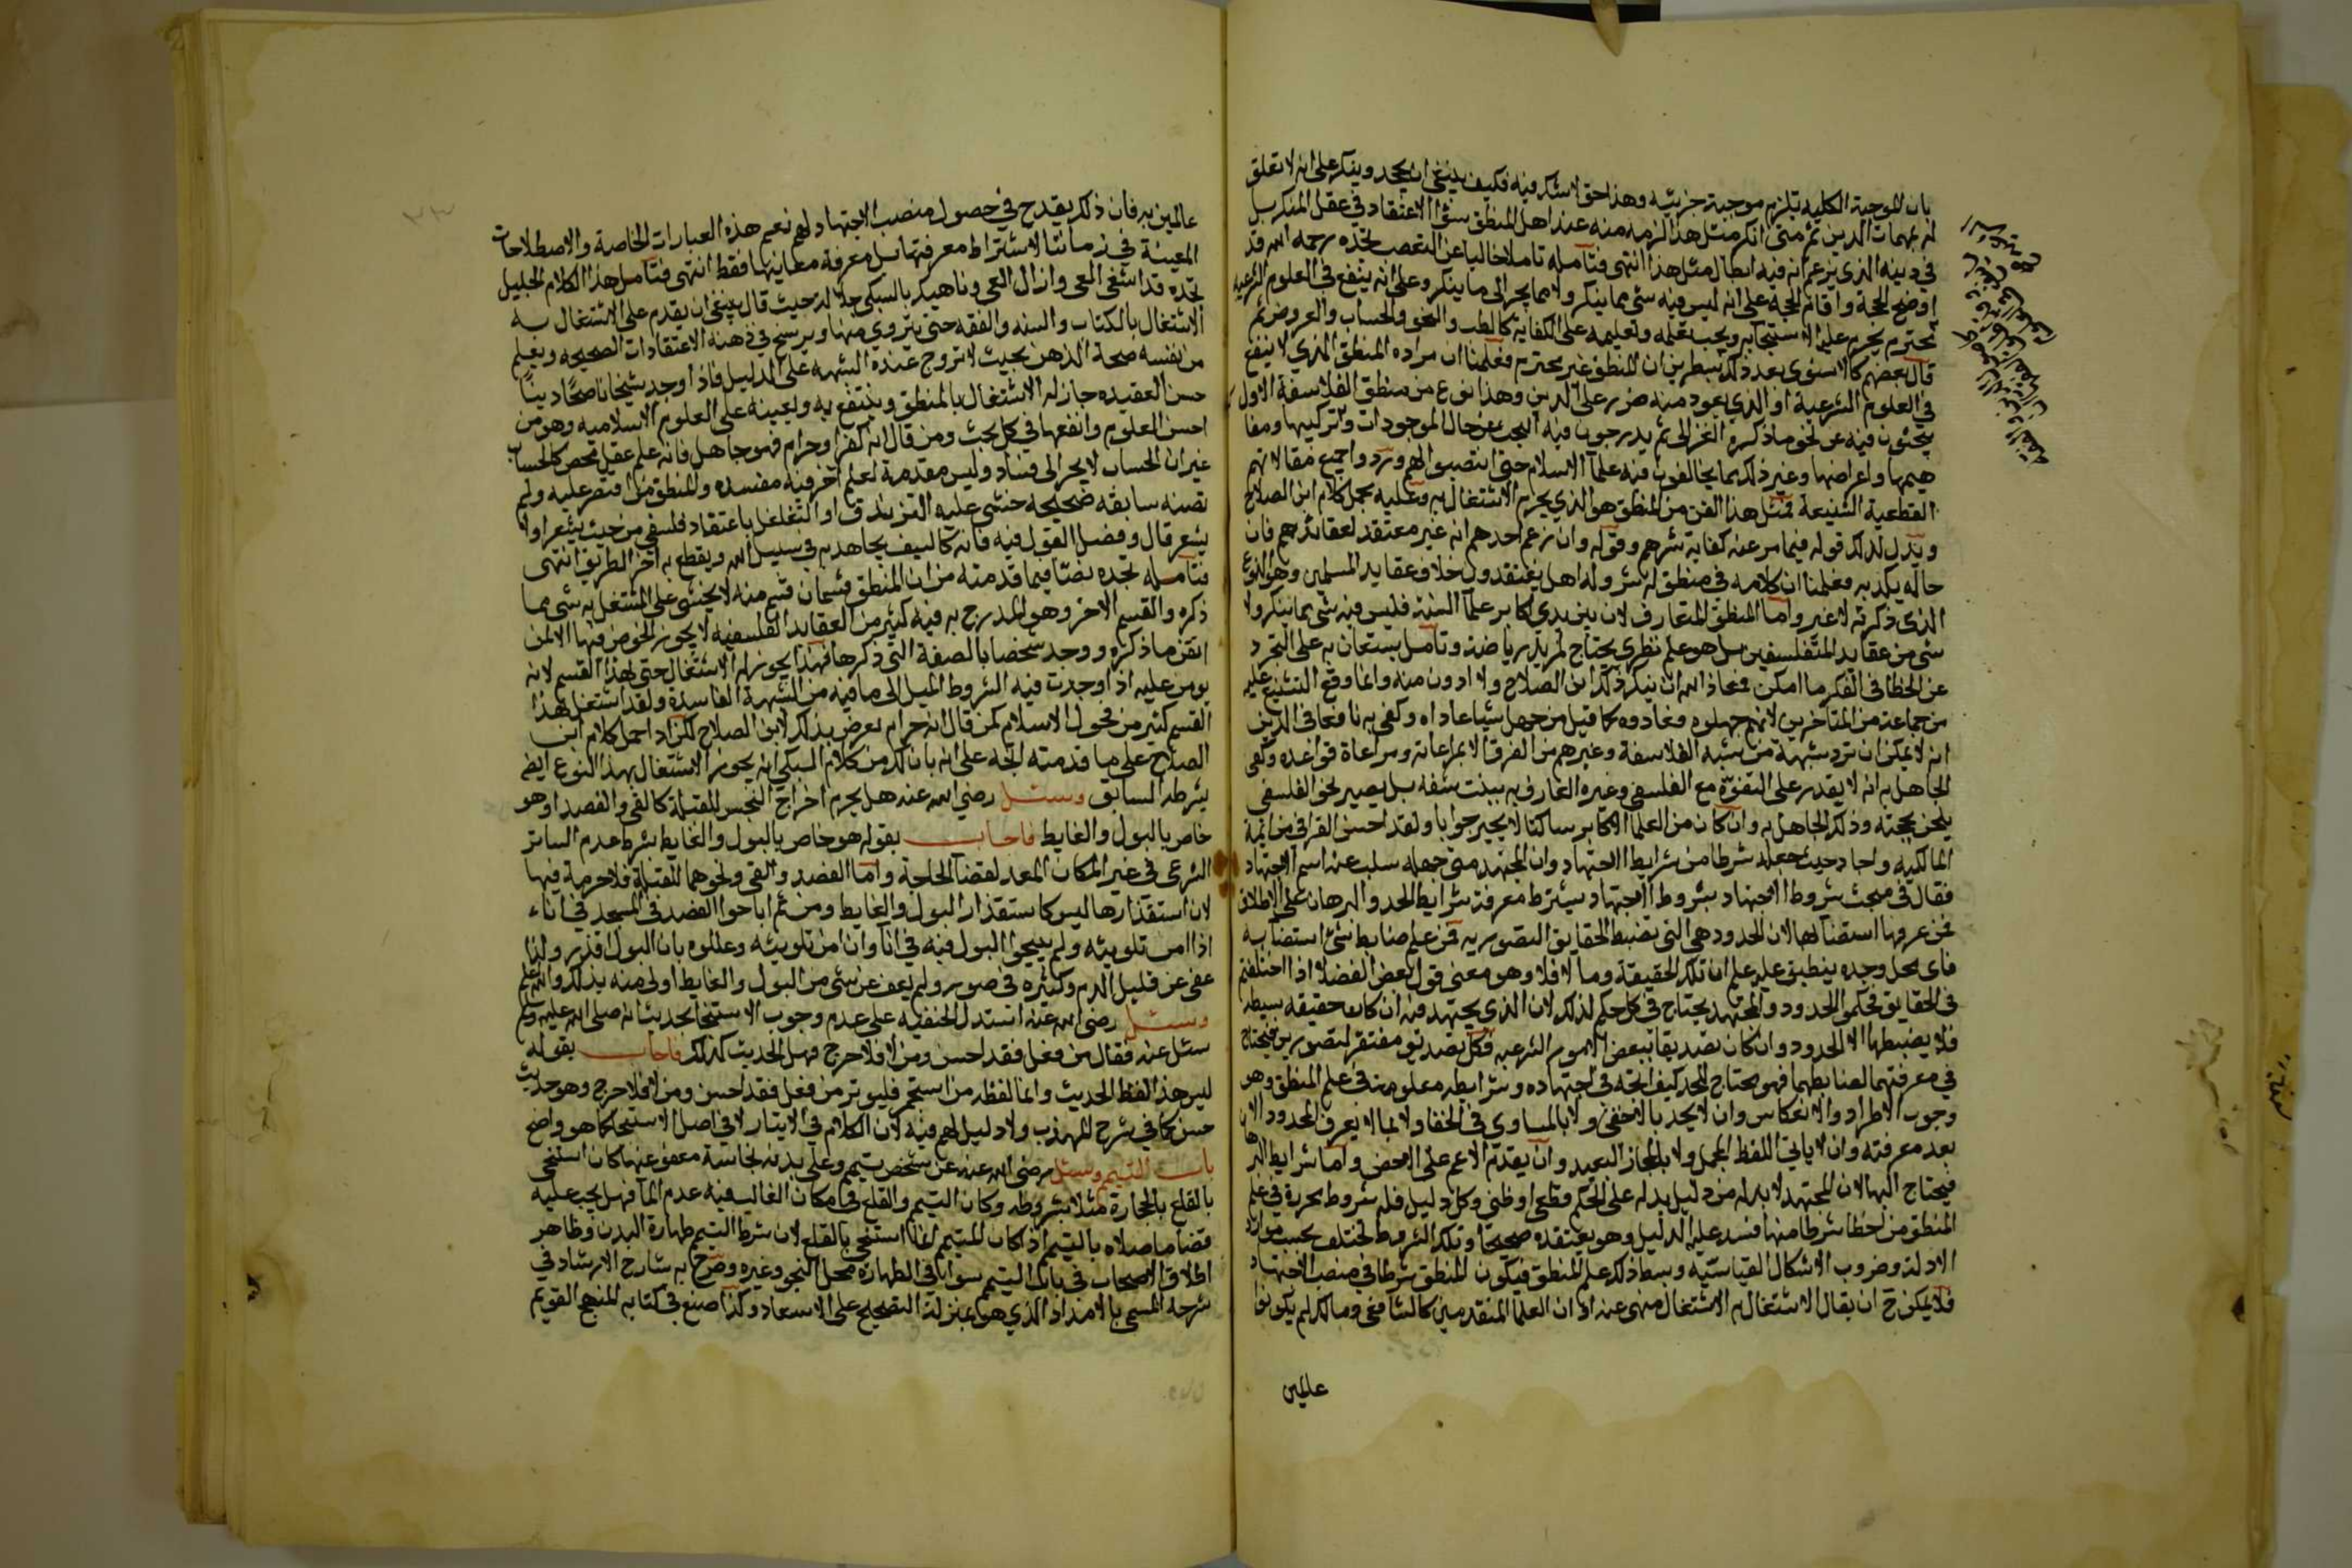 بان الموجبة الكليه تلزم موجبة جزئيه وهذا حق لا شك فيه فكيف ينبغى ان يجحد وينكر على انه لا تعلق
له بمهمات الدين ثم متى انكر مثل هذا لزمه منه عند اهل المنطق سوء الاعتقاد في عقل المنكر بل
في دينه الذى يزعم انه فيه ابطال مثل هذا انتهى فتأمله تاملا خاليا عن التعصب تجده رحمه الله قد
اوضح الحجة واقام الحجة على انه ليس فيه شى مما ينكر ولا مما يجر الى ما ينكر وعلى انه ينفع في العلوم الشرعيه
محترم يحرم على الاستنجا به ويجب تعلمه وتعليمه على الكفاية كالطب والنحو والحساب والعروض ثم
قال بعضهم كالاسنوى بعد ذلك بسطرين ان المنطق غير محترم فعلمنا ان مراده المنطق الذي لا ينفع
في العلوم الشرعية او الذي يعود منه ضرر على الدين وهذا نوع من منطق الفلاسفة الاول
يبحثون فيه عن نحو ما ذكره الغزالى ثم يدرجون فيه البحث عن حال الموجودات وتركيبها ومفا
هيمها واعراضها وغير ذلك مما يخالفون فيه علما الاسلام حتى انتصبوا لهم وردوا جميع مقالاتهم
القطعية الشنيعة فمثل هذا الفن من المنطق هو الذي يحرم الاشتغال به وعليه يحمل كلام ابن الصلاح
ويدل لذلك قوله فيما مر عنه كفاية شرهم وقوله وان زعم احدهم انه غير معتقد لعقائدهم فان
حاله يكذبه فعلمنا ان كلامه في منطق له شر وله اهل يعتقدون خلاف عقايد المسلمين وهو النوع
الذى ذكرته لا غير واما المنطق المتعارف الان بين يدى اكابر علما السنة فليس فيه شى مما ينكر ولا
شى من عقايد المتفلسفين بل هو علم نظرى يحتاج لمزيد رياضة وتامل يستعان به على التجرد
عن الخطا في الفكر ما امكن فمعاذ الله ان ينكر ذلك ابن الصلاح ولا ادون منه وانما وقع التشنيع عليه
من جماعة من المتاخرين لانهم جهلوه فعادوه كما قيل من جهل شيا عاداه وكفى به نافعا في الدين
انه لا يمكن ان ترد شبهة من شبه الفلاسفة وغيرهم من الفرق الا بمراعاته ومراعاة قواعده وكفى
الجاهل به انه لا يقدر على التفوه مع الفلسفى وغيره العارف به ببنت شفه بل يصير نحو الفلسفى
يلحن بحجته وذلك الجاهل به وان كان من العلما الاكابر ساكتا لا يحير جوابا ولقد احسن القرافى من ائمة
المالكيه واجاد حيث جعله شرطا من شرايط الاجتهاد وان المجتهد متى جهله سلب عنه اسم الاجتهاد
فقال في مبحث شروط الاجتهاد بشروط الاجتهاد يشترط معرفة شرايط الحد والبرهان على الاطلاق
فمن عرفها استضا بها لان الحدود هي التى تضبط الحقايق التصوريه فمن علم ضابط شئ استضا به
فاى محل وجده ينطبق عليه علم ان تلك الحقيقة وما لا فلا وهو معنى قول بعض الفضلا اذا اختلفتم
في الحقايق فحكموا الحدود والمجتهد يحتاج في كل حكم لذلك لان الذي يجتهد فيه ان كان حقيقه بسيطه
فلا يضبطها الا الحدود وان كان تصديقا ببعض الامور الشرعيه فكل تصديق مفتقر لتصورين فيحتاج
في معرفتهما لضابطهما فهو محتاج للحد كيف اتجه في اجتهاده وشرايطه معلومة في علم المنطق وهو
وجوب الاطراد والانعكاس وان لا يحد بالاخفى ولا بالمساوى في الخفا ولا بما لا يعرف المحدود الا
بعد معرفته وان لا ياتى اللفظ المجمل ولا بالمجاز البعيد وان يقدم الاعم على الاخص واما شرايط البرهان
فيحتاج اليها لان المجتهد لا بد له من دليل يدله على الحكم قطعى او ظنى وكل دليل فله شروط محررة في علم
المنطق من اخطا شرطا منها فسد عليه الدليل وهو يعتقده صحيحا وتلك الشروط تختلف بحسب موارد
الادلة وضروب الاشكال القياسيه وبسط ذلك علم المنطق فيكون المنطق شرطا في منصب الاجتهاد
فلا يمكن ح ان يقال الاشتغال به الاشتغال منهى عنه او ان العلما المتقدمين كالشافعى ومالك لم يكونوا
عالمين
عالمين به فان ذلك يقدح في حصول منصب الاجتهاد لهم نعم هذه العبارات الخاصة والاصطلاحات
المعينة في زماننا لا يشترط معرفتها بل معرفة معاينها فقط انتهى فتأمل هذا الكلام الجليل
تجده قد اشفى العى وازال الغى وناهيك بالسبكى جلالة حيث قال ينبغى ان يقدم على الاشتغال به
الاشتغال بالكتاب والسنه والفقه حتى يتروى منها ويرسخ في ذهنه الاعتقادات الصحيحه ويعلم
من نفسه صحة الذهن بحيث لا تروج عنده الشبهه على الدليل فاذا وجد شيخا ناصحًا دينًا
حسن العقيده جاز له الاشتغال بالمنطق وينتفع به ويعينه على العلوم الاسلاميه وهو من
احسن العلوم وانفعها في كل بحث ومن قال انه كفر او حرام فهو جاهل فانه علم عقلى محض كالحساب
غير ان الحساب لا يجر الى فساد وليس مقدمة لعلم اخر فيه مفسده والمنطق من اقتصر عليه ولم
تصنه سابقه صحيحه خشى عليه التزندق او التغلغل باعتقاد فلسفى من حيث يشعر او لا
يشعر قال وفصل القول فيه فانه كالسيف يجاهد به في سبيل الله ويقطع به اخر الطريق انتهى
فتأمله تجده نصّا فيما قدمته من ان المنطق قسمان قسم منه لا يخشى على المشتغل به شى مما
ذكره والقسم الاخر وهو المدرج به فيه كثير من العقايد الفلسفيه لا يجوز الخوض فيها الا لمن
اتقن ما ذكره ووجد شخصا بالصفة التى ذكرها فهذا يجوز له الاشتغال حتى بهذا القسم لانه
يومن عليه اذا وجدت فيه الشروط الميل الى ما فيه من الشبهة الفاسدة ولقد اشتغل بهذا
القسم كثير من فحول الاسلام لمن قال انه حرام يعرض بذلك لابن الصلاح لكن اذا حمل كلام ابن
الصلاح على ما قدمته اتجه على انه بان لك من كلام السبكى انه يجوز الاشتغال بهذا النوع ايض
بشرطه السابق وسئل رضى الله عنه هل يحرم اخراج النجس للقبلة كالقى والفصد او هو
خاص بالبول والغايط فاجاب بقوله هو خاص بالبول والغايط بشرط عدم الساتر
الشرعى في غير المكان المعد لقضا الحاجة واما الفصد والقى ونحوهما للقبلة فلا حرمة فيها
لان استقذارها ليس كاستقذار البول والغايط ومن ثم اباحوا الفصد في المسجد في اناء
اذا امن تلويثه ولم يبيحوا البول فيه في انا وان امن تلويثه وعللوه بان البول اقذر ولذا
عفى عن قليل الدم وكثيره في صور ولم يعف عن شى من البول والغايط اولى منه بذلك والله اعلم
وسئل رضى الله عنه استدل الحنفيه على عدم وجوب الاستنجا بحديث انه صلى الله عليه وسلم
سئل عنه فقال من فعل فقد احسن ومن لا فلا حرج فهل الحديث كذلك فاجاب بقوله
ليس هذا لفظ الحديث وانما لفظه من استجمر فليوتر من فعل فقد احسن ومن لا فلا حرج وهو حديث
حسن كما في شرح المهذب ولا دليل لهم فيه لان الكلام في الايتار لا في اصل الاستنجا كما هو واضح
باب التيمم وسئل رضى الله عنه عن شخص تيمم وعلى بدنه نجاسة معفو عنها كان استنجى
بالقلع بالحجارة مثلا بشروطه وكان التيمم والقلع في مكان الغالب فيه عدم الما فهل يجب عليه
قضا ما صلاه بالتيمم اذ كان المتيمم انما استنجى بالقلع لان شرط التيمم طهارة البدن وظاهر
اطلاق الاصحاب في باب التيمم سوا في الطهارة محل النجو وغيره وصرح به شارح الارشاد في
شرحه المسمى بالامداد الذي هو بمنزلة التصحيح على الاسعاد وكذا صنع في كتابه المنهج القويم